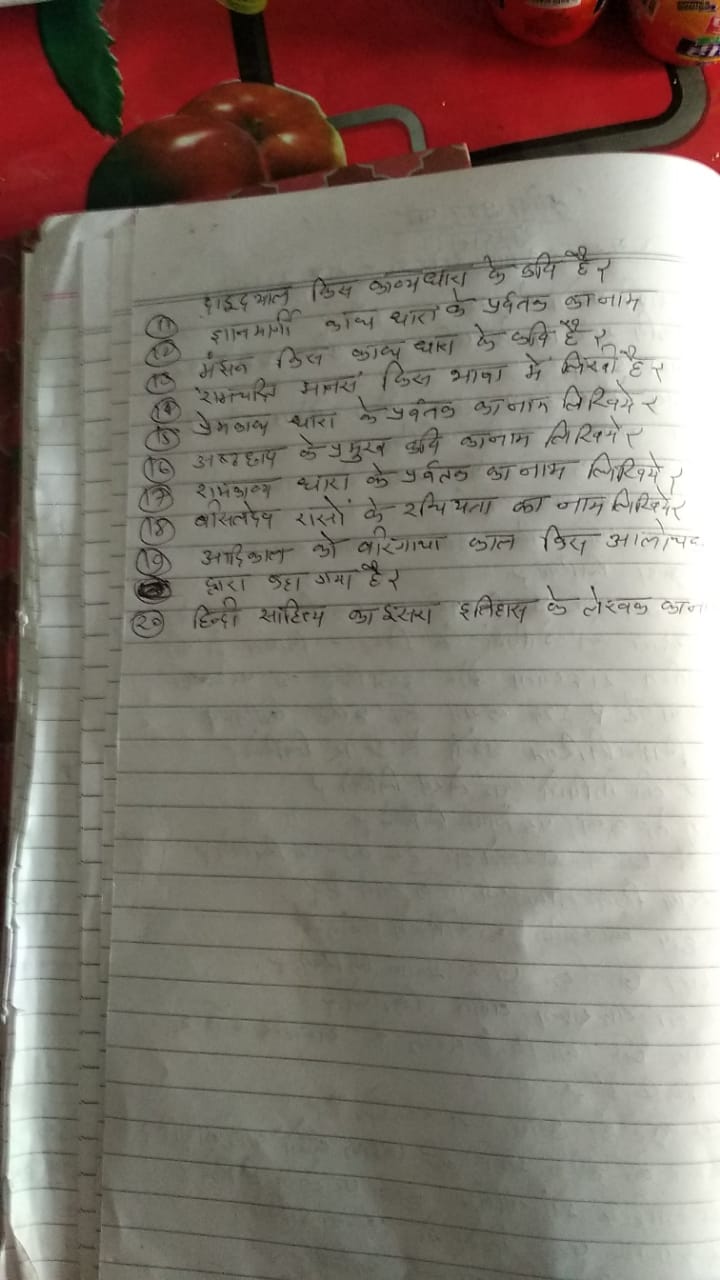 ⑪ दादूदयाल किस काव्यधारा के कवि है?
⑫ ज्ञानमार्गी काव्य धारा के प्रर्वतक का नाम
⑬ मंझन किस काव्य धारा के कवि है?
⑭ रामचरित मानस किस भाषा में लिखी है?
⑮ प्रेमकाव्य धारा के प्रर्वतक का नाम लिखिये?
⑯ अष्टछाप के प्रमुख कवि का नाम लिखिये?
⑰ रामकाव्य धारा के प्रर्वतक का नाम लिखिये?
⑱ बीसलदेव रासों के रचियता का नाम लिखिये?
⑲ आदिकाल को वीरगाथा काल किस आलोचक
द्वारा कहा गया है?
⑳ हिन्दी साहित्य का दूसरा इतिहास के लेखक का